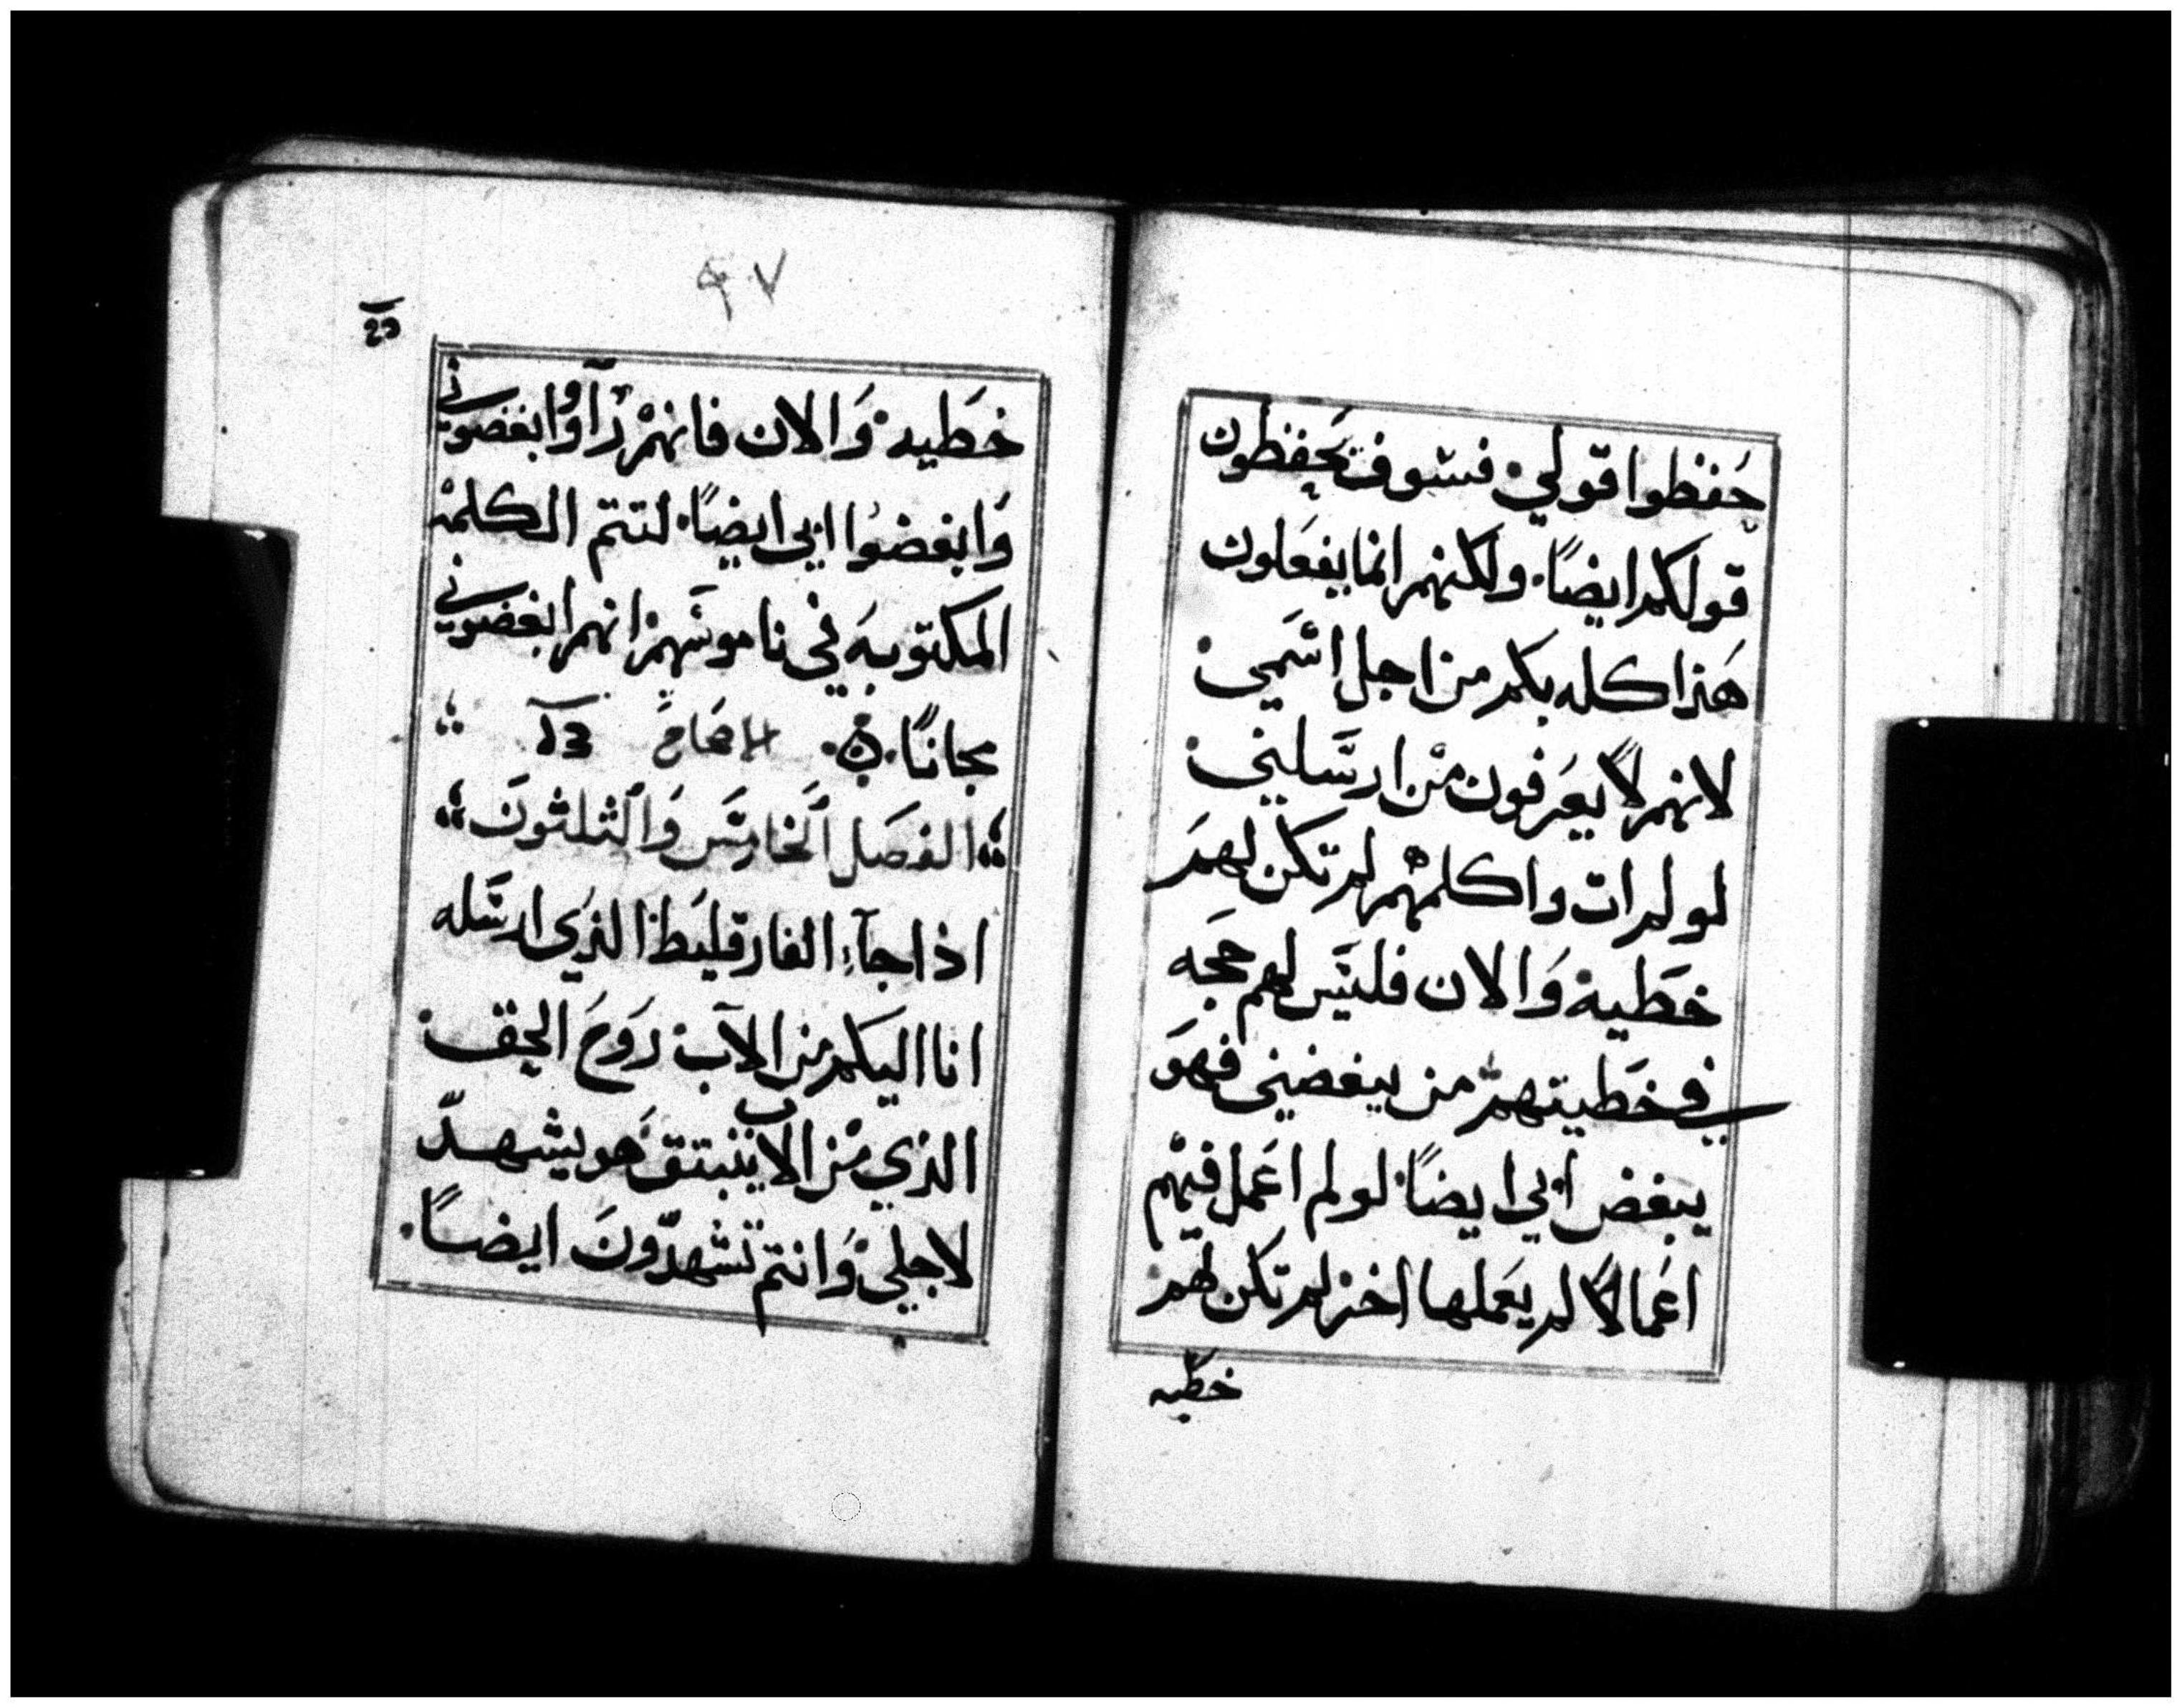 حَفظوا قولي فسَوف يَحفِظون
قولكم ايضاً. ولكنهم انما يفعَلون
هَذا كله بكم من اجل اسَمي
لانهم لا يعَرفون من ارسَلني
لو لم ات واكلمهم لم تكن لهم
خطَية وَالان فليسَ لهم حجه
في خطَيتهم من يبغضني فهوَ
يبغض ابي ايضاً لو لم اعَمل فيهم
اعَمالاً لم يعَملها اخر لم تكن لهم
خطيه
٩٧
خطَيه وَالان فانهم رَآوا وابغضوني
وَابغضوا ابي ايضاً لتتم الكلمة
المكتوبهَ في ناموسَهم انهم ابغضوني
مجاناً.
الفصَل اَلخامسَ وَالثلثونَ
اذا جآءِ الفارقليَط الذي ارسَله
انا اليكم من الآب روَحَ الحق
الذي من الاب ينبتق هَو يشهدّ
لاجلي وَانتم تشهدّونَ ايضاً.